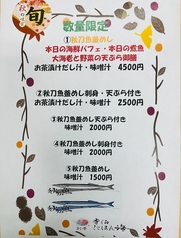 秋の
旬
数量限定
①秋刀魚釜めし
本日の海鮮パフェ・本日の煮魚
大海老と野菜の天ぷら御膳
お茶漬けだし汁・味噌汁 4500円
②秋刀魚釜めし刺身・天ぷら付き
お茶漬けだし汁・味噌汁 2500円
③秋刀魚釜めし天ぷら付き
味噌汁 2000円
④秋刀魚釜めし刺身付き
味噌汁 2000円
⑤秋刀魚釜めし
味噌汁 1500円